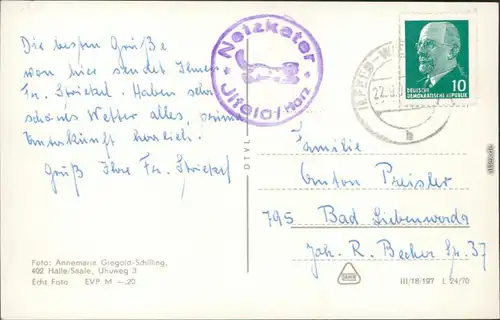 Die besten Grüße
von hier sendet Ihnen
Fr. Strickel. Haben sehr
schönes Wetter alles, prima
Unterkunft herrlich.
Gruß Ihre Fr. Strickel
Netzkater
Ilfeld/Harz
DEUTSCHE
DEMOKRATISCHE REPUBLIK
10
22.9.
b
DTVL
Familie
Anton Preisler
795 Bad Liebenwerda
Joh. R. Becher Str. 37
Foto: Annemarie Giegold-Schilling,
402 Halle/Saale, Uhuweg 3
Echt Foto EVP M -.20
III/18/197 L 24/70